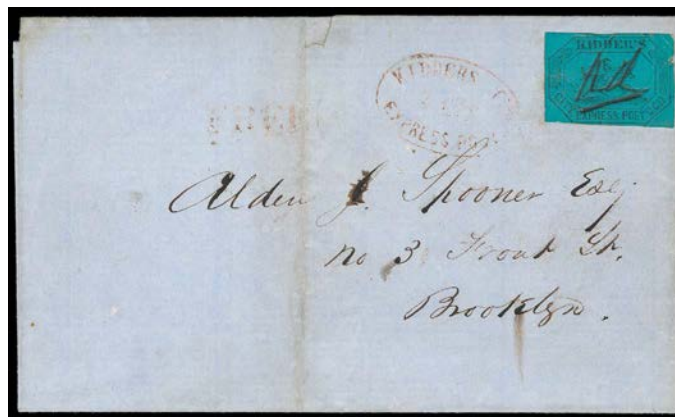 KIDDER'S
CITY
EXPRESS POST
KIDDERS
EXPRESS POST
Alden J. Spooner Esq
no 3 Front St.
Brooklyn.